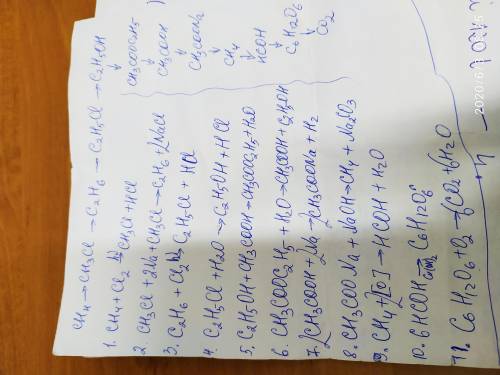 CH4 → CH3Cl → C2H6 → C2H5Cl → C2H5OH
CH3COOC2H5
↓
CH3COOH
↓
CH3COONa
↓
CH4
↓
HCOH
↓
C6H12O6
↓
CO2
1. CH4 + Cl2 → CH3Cl + HCl
2. CH3Cl + 2Na + CH3Cl → C2H6 + 2NaCl
3. C2H6 + Cl2 → C2H5Cl + HCl
4. C2H5Cl + H2O → C2H5OH + HCl
5. C2H5OH + CH3COOH → CH3COOC2H5 + H2O
6. CH3COOC2H5 + H2O → CH3COOH + C2H5OH
7. 2CH3COOH + 2Na → 2CH3COONa + H2
8. CH3COONa + NaOH → CH4 + Na2CO3
9. CH4 + 2[O] → HCOH + H2O
10. 6HCOH → C6H12O6
11. C6H12O6 + O2 → 6CO2 + 6H2O